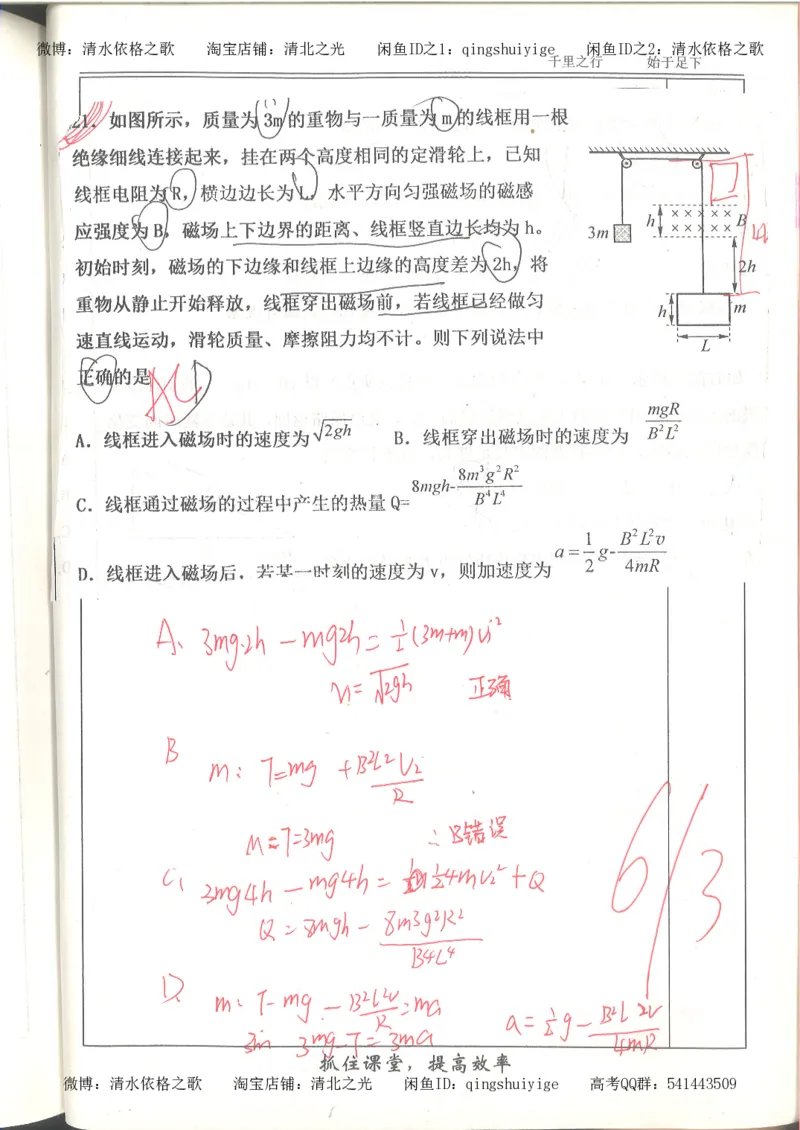 微博：清水依格之歌 淘宝店铺：清北之光 闲鱼ID之1：qingshuiyige 闲鱼ID之2：清水依格之歌
千里之行 始于足下
21. 如图所示，质量为 3m 的重物与一质量为 m 的线框用一根
绝缘细线连接起来，挂在两个高度相同的定滑轮上，已知
线框电阻为 R，横边边长为 L，水平方向匀强磁场的磁感
应强度为 B，磁场上下边界的距离、线框竖直边长均为 h。
初始时刻，磁场的下边缘和线框上边缘的高度差为 2h，将
重物从静止开始释放，线框穿出磁场前，若线框已经做匀
速直线运动，滑轮质量、摩擦阻力均不计。则下列说法中
正确的是
ACD
3m
h
B
4h
2h
h
m
L
A．线框进入磁场时的速度为 √2gh B．线框穿出磁场时的速度为 mgR/B²L²
C．线框通过磁场的过程中产生的热量 Q=8mgh-8m³g²R²/B⁴L⁴
D．线框进入磁场后，若某一时刻的速度为 v，则加速度为 a=1/2 g-B²L²v/4mR
A、3mg·2h-mg2h=1/2(3m+m)v₁²
v₁=√2gh 正确
B m：T=mg+B²L²v₂/R
M=T=3mg ∴B错误
C、3mg4h-mg4h=1/2 4mv₂²+Q
Q=8mgh-8m3g²R²/B4L⁴
D m：T-mg-B²L²v/R=ma
3m 3mg-T=3ma a=1/2 g-B²L²v/4mR
6/3
抓住课堂，提高效率
微博：清水依格之歌 淘宝店铺：清北之光 闲鱼ID：qingshuiyige 高考QQ群：541443509